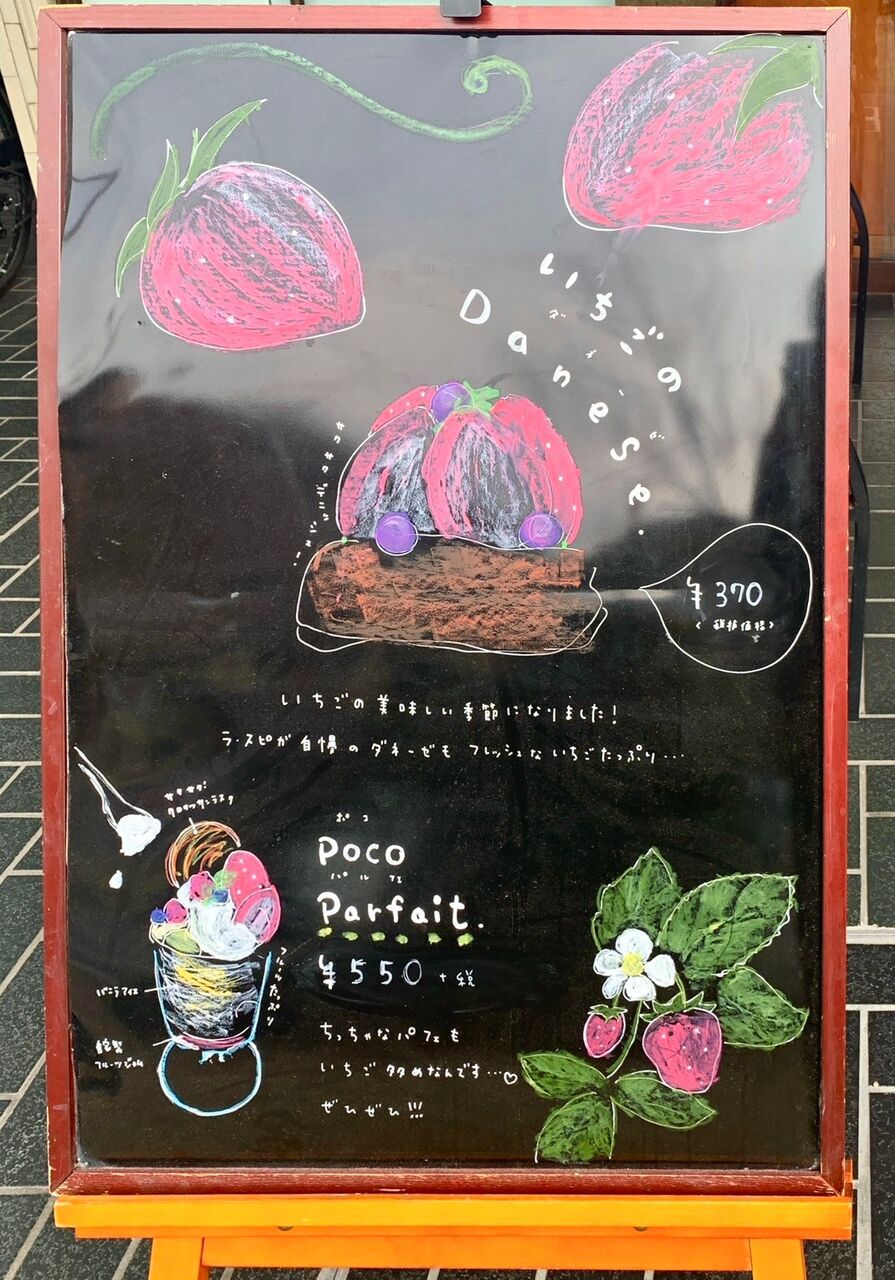 いちごの
Danese.
¥370
<税抜価格>
いちごの美味しい季節になりました!
ラ・スピが自慢のダネーゼもフレッシュないちごたっぷり…
サクサク!
クロワッサンラスク
ポコ
Poco
パルフェ
Parfait.
¥550 +税
フルーツたっぷり
バニラアイス
自家製
フルーツジャム
ちっちゃなパフェも
いちご多めなんです…♡
ぜひぜひ!!!